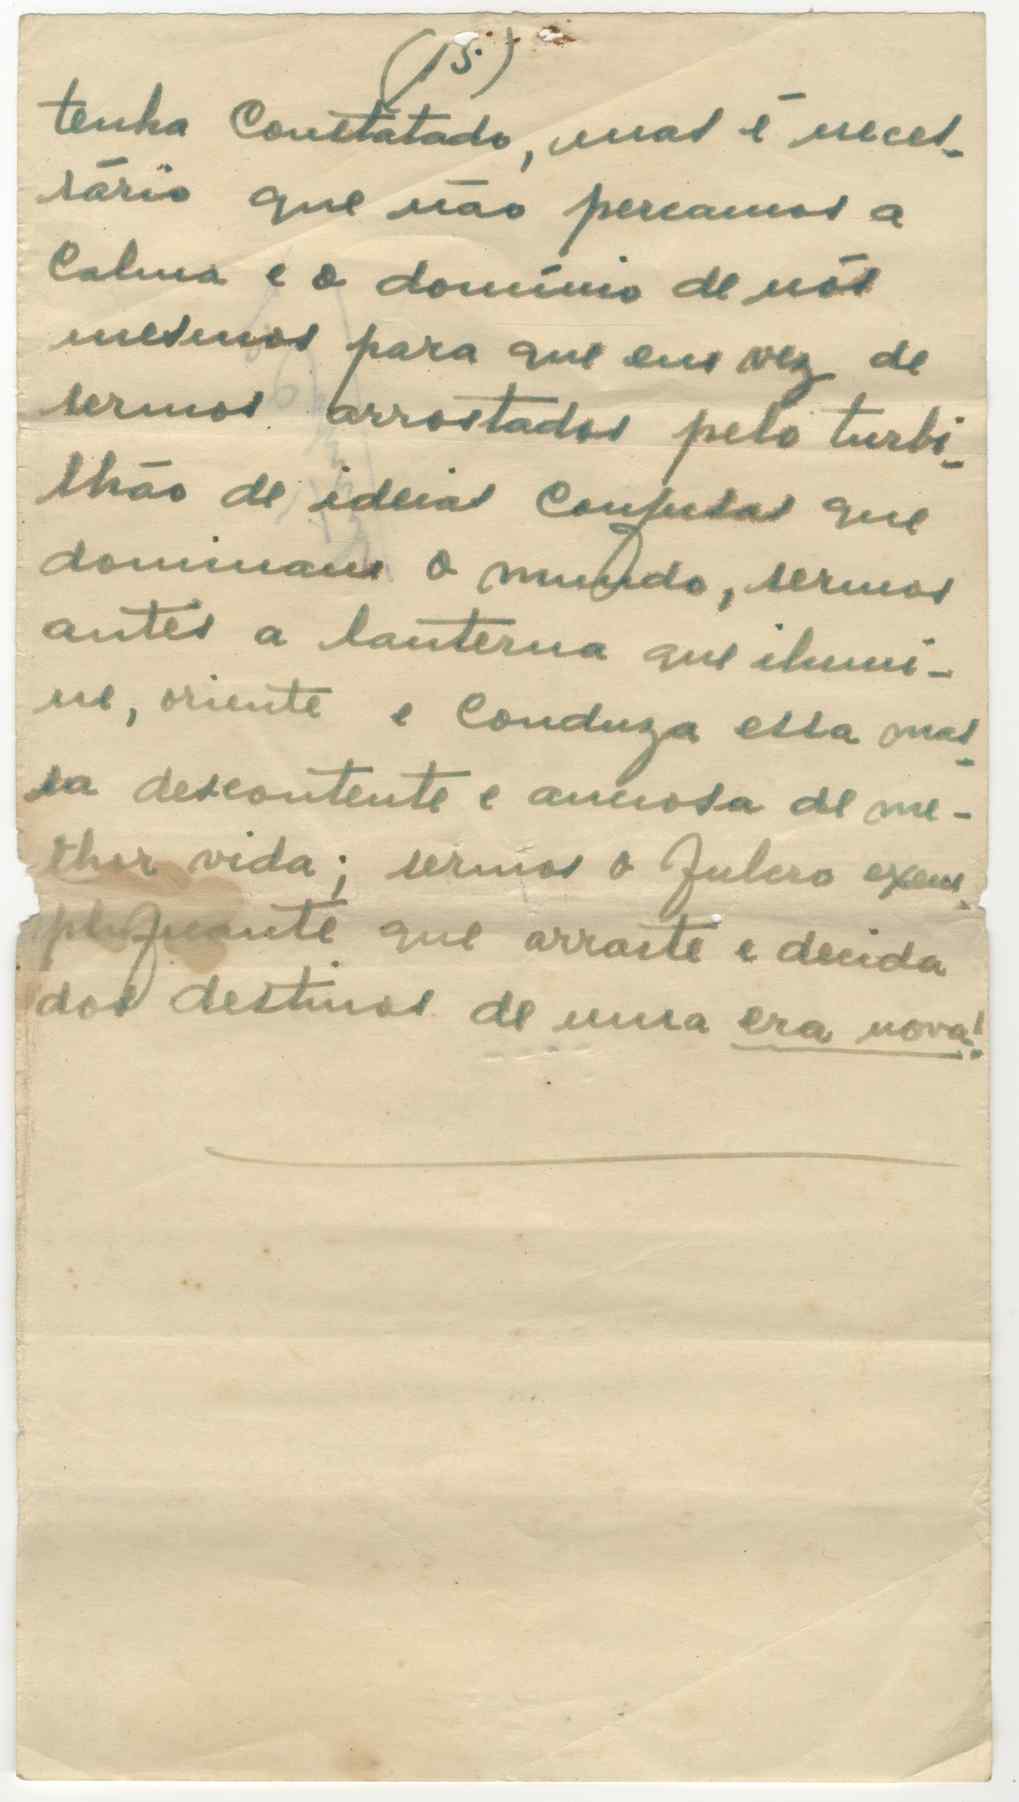 (15)
tenha constatado, mas é neces-
sário que não percamos a
calma e o domínio de nós
mesmos para que em vez de
sermos arrostados pelo turbi-
lhão de ideias confusas que
dominam o mundo, sermos
antes a lanterna que ilumi-
ne, oriente e conduza essa mas-
sa descontente e anciosa de me-
lhor vida; sermos o fulcro exem-
plificante que arraste e decida
dos destinos de uma era nova!